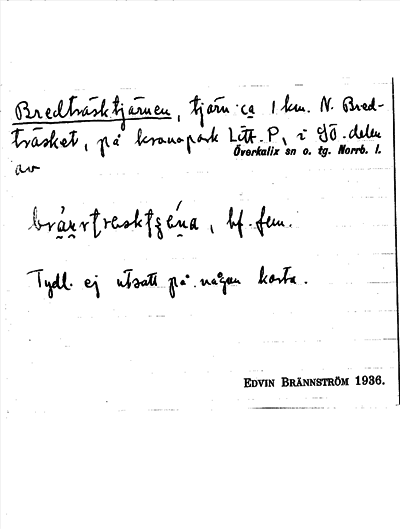 Bredträsktjärnen, tjärn ca 1 km. N. Bred-
träsket, på kronopark Litt. P, i SÖ. delen
av Överkalix sn o. tg. Norrb. l.
bf. fem.
Tydl. ej utsatt på någon karta.
EDVIN BRÄNNSTRÖM 1936.